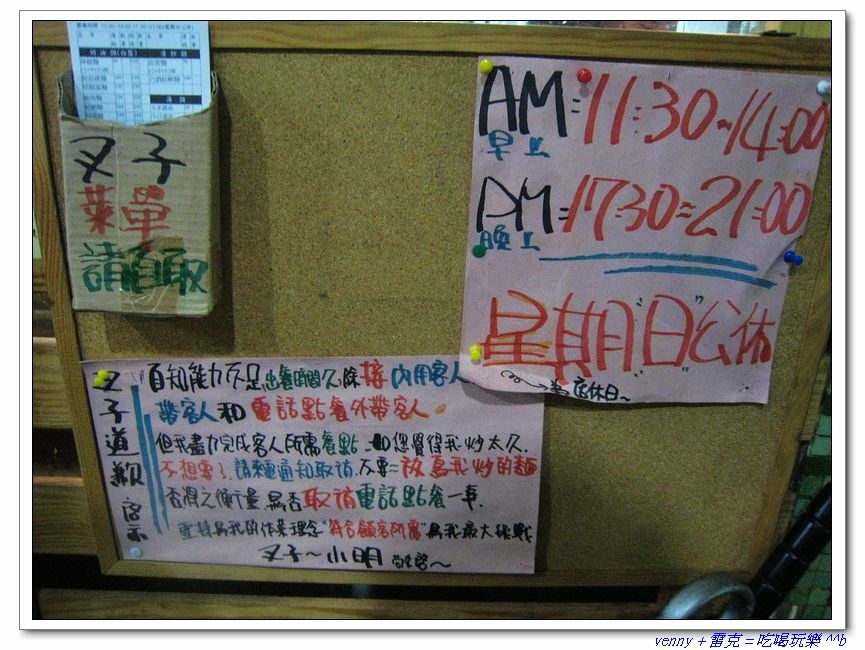 叉子
菜單
請自取
AM=11:30~14:00
早上
PM=17:30~21:00
晚上
星期"日"公休
店休日~
叉子道歉啟示
自知能力不足出餐時間久除接內用客人
帶客人和電話點餐外帶客人
但我盡力完成客人所需餐點 如您覺得我炒太久
不想要了,請來電通知取消,不要~放鳥我炒的麵
否將之衡量,是否取消電話點餐一事.
堅持為我的作業理念"符合顧客所需"為我最大挑戰
叉子~小明 敬啓~
venny + 雷克 = 吃喝玩樂 ^^b